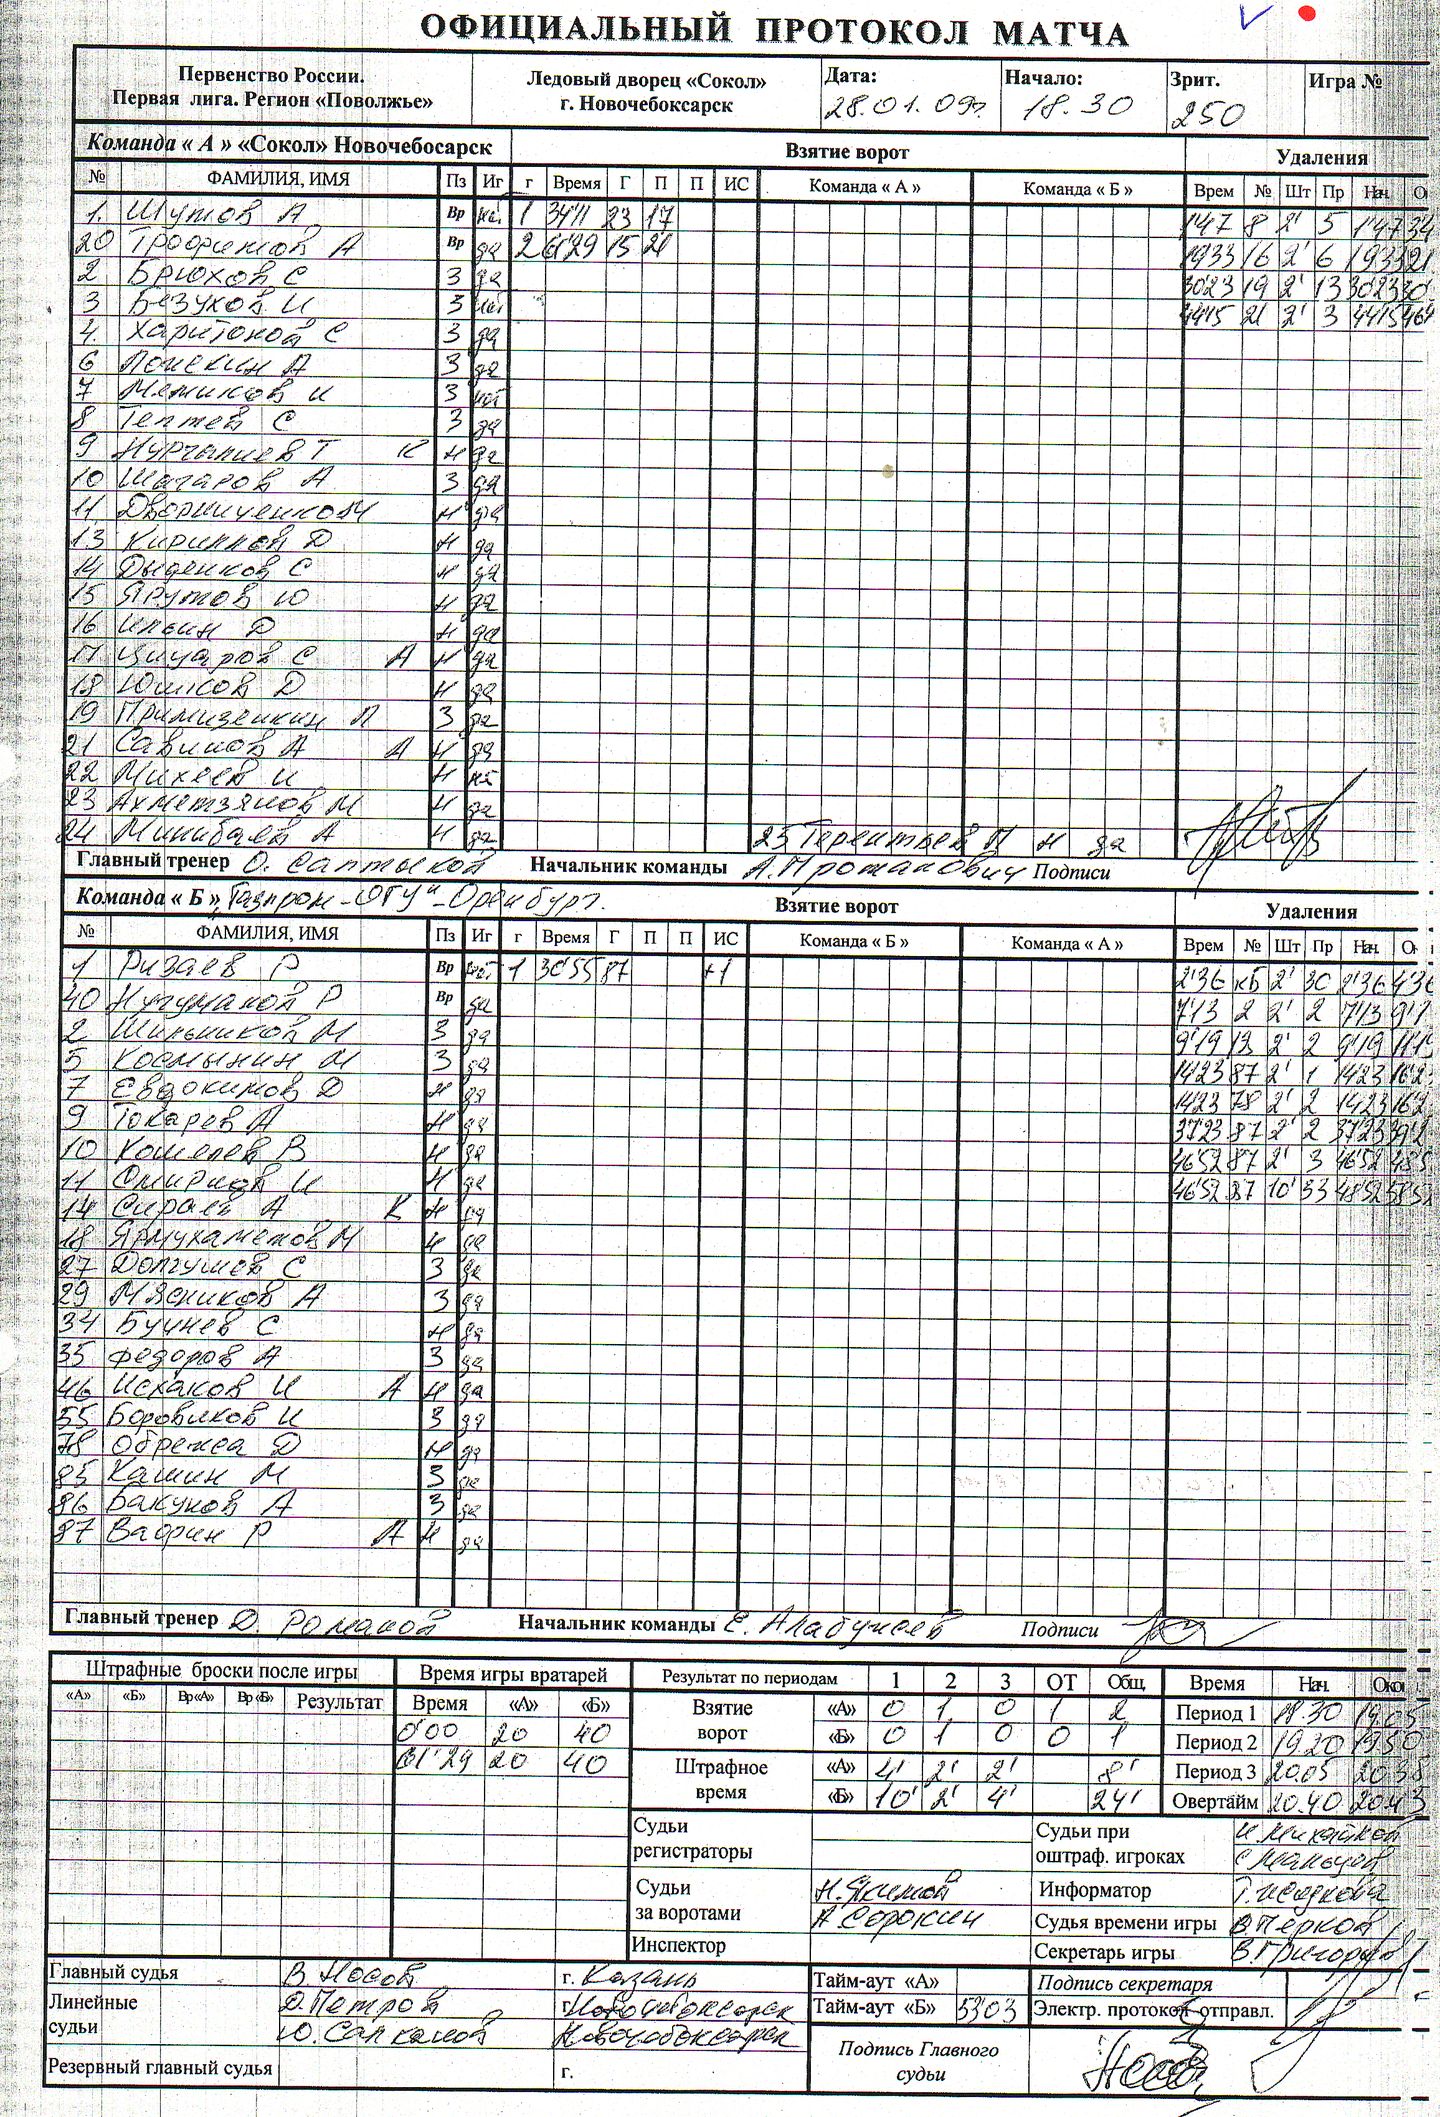 ОФИЦИАЛЬНЫЙ ПРОТОКОЛ МАТЧА
Первенство России. Первая лига. Регион «Поволжье» Ледовый дворец «Сокол» г. Новочебоксарск Дата: 28.01.09г. Начало: 18.30 Зрит. 250 Игра №
Команда « А » «Сокол» Новочебосарск Взятие ворот Удаления
№ ФАМИЛИЯ, ИМЯ Пз Иг г Время Г П П ИС Команда « А » Команда « Б » Врем № Шт Пр Нач.
1. Шутов А Вр 1 34'11 23 17 1'47 8 2' 5 1'47
20 Трофимов А Вр да 2 61'29 15 21 19'33 16 2' 6 19'33
2 Брюхов С З да 30'23 19 2' 13 30'23
3 Безухов И З нет 44'15 21 2' 3 44'15
4. Харитонов С З да
6 Ложкин А З да
7 Мешков И З нет
8 Тептев С З да
9 Нургалиев Т К Н да
10 Шагаров А З да
11 Дворниченко М Н да
13 Кириллов D Н да
14 Дыденков С Н да
15 Ярутов Ю Н да
16 Ильин D Н да
17 Цицаров С А Н да
18 Юшков D Н да
19 Примизенкин П З да
21 Савинов А А Н да
22 Михеев И Н
23 Ахметзянов М Н да
24 Минибаев А Н да 25 Терентьев П Н да
Главный тренер О. Салтыков Начальник команды А. Протапович Подписи
Команда « Б » „Газпром-ОГУ" - Оренбург. Взятие ворот Удаления
№ ФАМИЛИЯ, ИМЯ Пз Иг г Время Г П П ИС Команда « Б » Команда « А » Врем № Шт Пр Нач.
1 Ризаев Р Вр нет 1 30'55 87 +1 2'36 кБ 2' 30 2'36 4'36
40 Нугуманов Р Вр да 7'13 2 2' 2 7'13
2 Шильников М З да 9'19 13 2' 2 9'19
5 Космынин М З да 14'23 87 2' 1 14'23
7 Евдокимов D Н да 14'23 78 2' 2 14'23
9 Токарев А Н да 37'23 87 2' 2 37'23
10 Кошелев В Н да 46'52 87 2' 3 46'52
11 Смирнов И Н да 46'52 87 10' 33 48'52 58'52
14 Сираев А К Н да
18 Ярмухаметов М Н да
27 Долгушев С З да
29 Мясников А З да
34 Буцнев С Н да
35 Федоров А З да
46 Исхаков И А Н да
55 Боровиков И З да
78 Обрежа D Н да
85 Кашин М З да
86 Бакунов А З да
87 Вафин Р А Н да
Главный тренер D. Романов Начальник команды Е. Алабужев Подписи
Штрафные броски после игры Время игры вратарей Результат по периодам 1 2 3 ОТ Общ. Время Нач.
«А» «Б» Вр«А» Вр«Б» Результат Время «А» «Б» Взятие ворот «А» 0 1 0 1 2 Период 1 18.30 19.05
0'00 20 40 «Б» 0 1 0 0 1 Период 2 19.20 19.50
61'29 20 40 Штрафное время «А» 4' 2' 2' 8' Период 3 20.05 20.38
«Б» 10' 2' 4' 24' Овертайм 20.40 20.43
Судьи регистраторы Судьи при оштраф. игроках И. Михайлов
С. Мальцов
Судьи за воротами Н. Якимов Информатор
А Сорокин Судья времени игры В. Перков
Инспектор Секретарь игры В. Григорьев
Главный судья В. Носов г. Казань Тайм-аут «А» Подпись секретаря
Линейные судьи D. Петров г. Новочебоксарск Тайм-аут «Б» 53'03 Электр. протокол отправл.
Ю. Салканов Новочебоксарск Подпись Главного судьи
Резервный главный судья г.